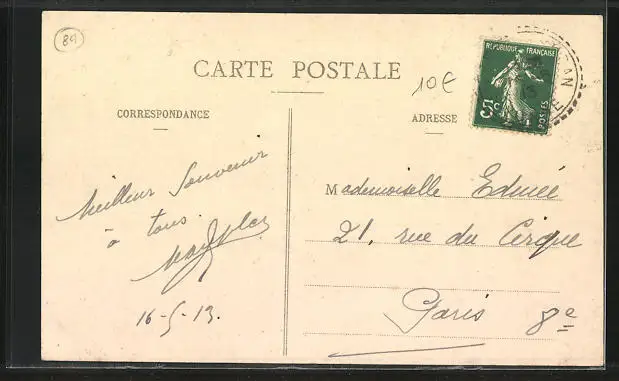 89
CARTE POSTALE
10€
REPUBLIQUE FRANÇAISE
5c
POSTES
CORRESPONDANCE
ADRESSE
Meilleur Souvenir
à tous
16-5-13.
Mademoiselle Edmée
21, rue du Cirque
Paris 8e